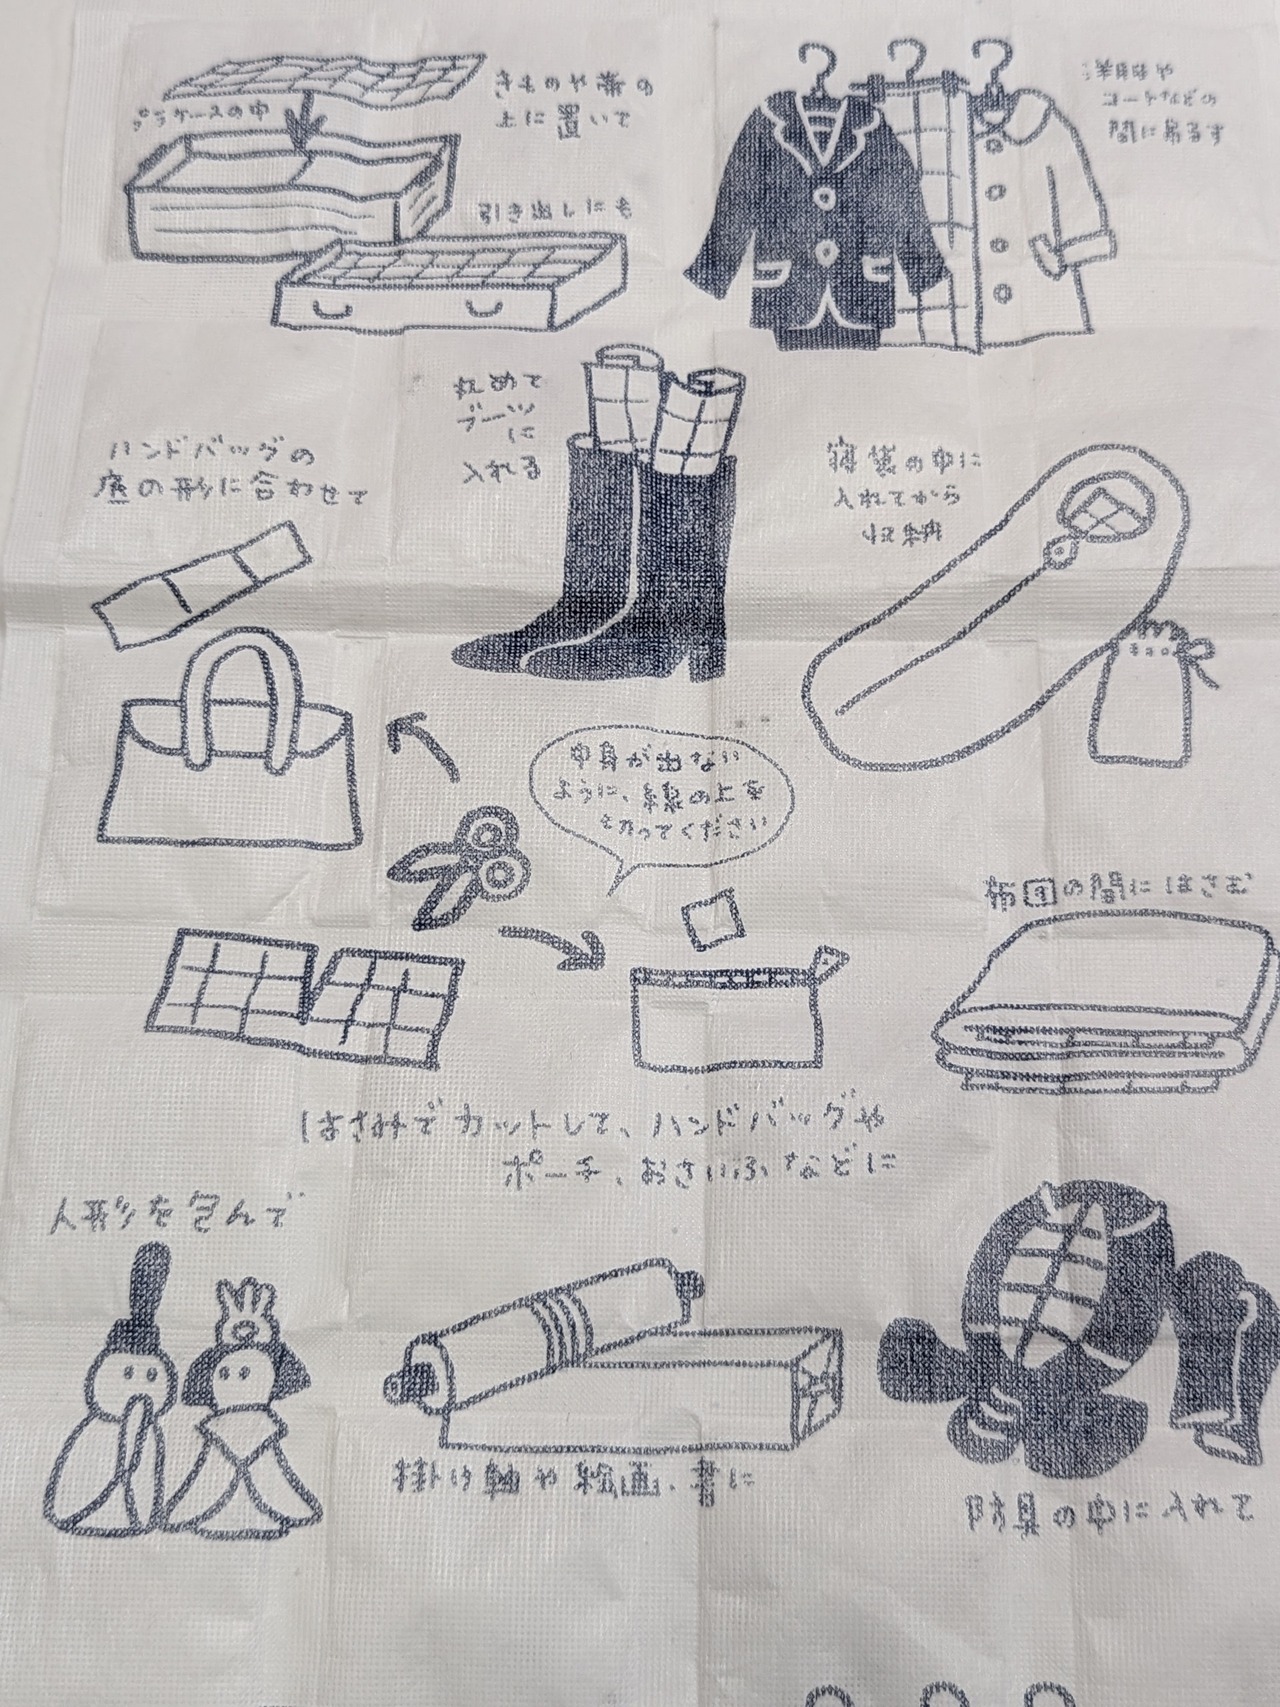 きものや帯の
上に置いて
プラケースの中
引き出しにも
洋服や
コートなどの
間に吊るす
丸めて
ブーツ
に
入れる
ハンドバッグの
底の形に合わせて
寝袋の中に
入れてから
収納
中身が出ない
ように、線の上を
切ってください
布団の間にはさむ
はさみでカットして、ハンドバッグや
ポーチ、おさいふなどに
人形を包んで
掛け軸や絵画、書に
防具の中に入れて